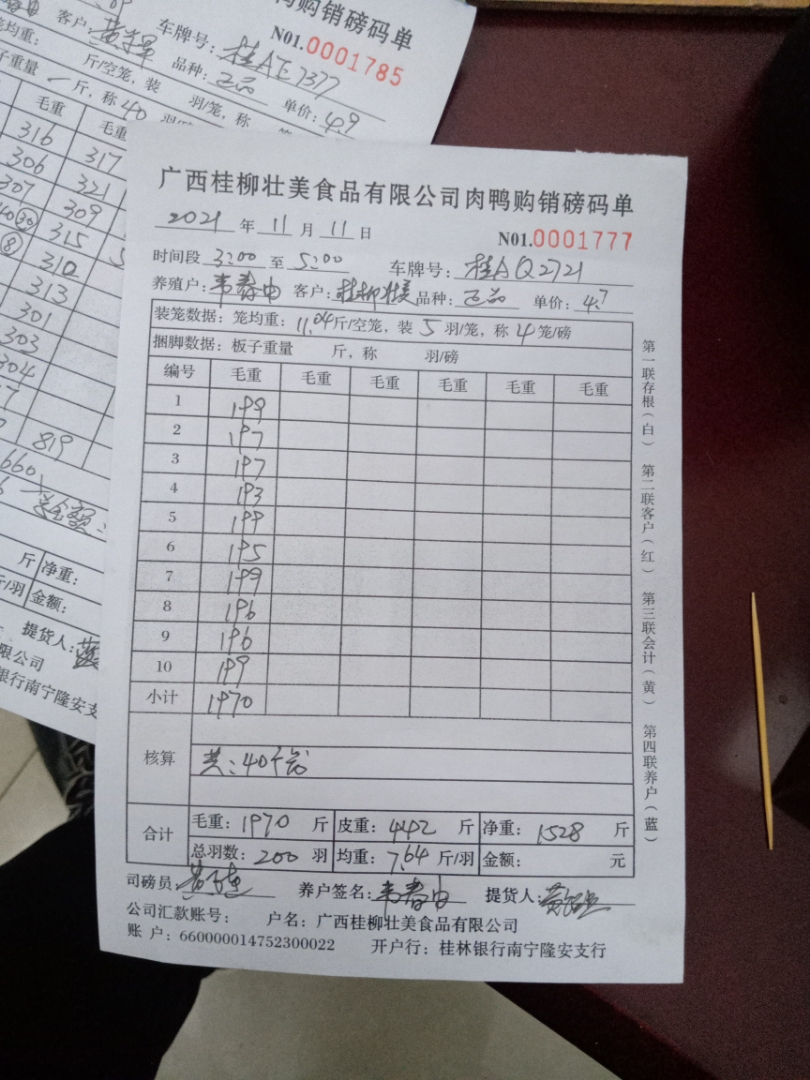 购销磅码单
N01.0001785
客户: 车牌号: 桂AE7377
笼均重: 斤/空笼, 装 羽/笼, 称 品种: 正品 单价: 4.9
子重量 一 斤, 称 40
毛重 毛重
316 317
306 321
307 309
315
310
313
301
303
304
819
660
总金额:
斤 净重:
斤/羽 金额:
提货人:
限公司
银行南宁隆安支
广西桂柳壮美食品有限公司肉鸭购销磅码单
2021 年 11 月 11 日 N01.0001777
时间段 3:00 至 5:00 车牌号: 桂AQ2721
养殖户: 韦春由 客户: 桂柳壮美 品种: 正品 单价: 4.7
装笼数据: 笼均重: 11.04斤/空笼, 装 5 羽/笼, 称 4 笼/磅
捆脚数据: 板子重量 斤, 称 羽/磅
编号 毛重 毛重 毛重 毛重 毛重 毛重
1 199
2 197
3 197
4 193
5 199
6 195
7 199
8 196
9 196
10 199
小计 1970
核算 共: 40个笼
合计 毛重: 1970 斤 皮重: 442 斤 净重: 1528 斤
总羽数: 200 羽 均重: 7.64 斤/羽 金额: 元
司磅员: 养户签名: 韦春由 提货人:
公司汇款账号: 户名: 广西桂柳壮美食品有限公司
账 户: 660000014752300022 开户行: 桂林银行南宁隆安支行
第一联存根(白) 第二联客户(红) 第三联会计(黄) 第四联养户(蓝)